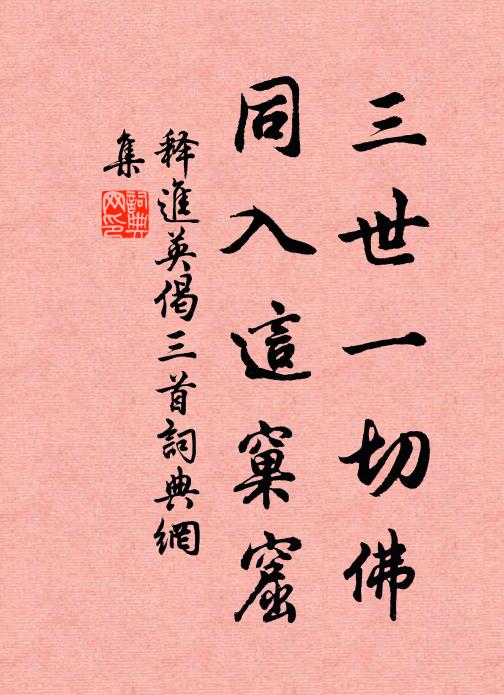 三世一切佛
同入這窠窟
释進英偈三首詞典網
集
詞典
网印